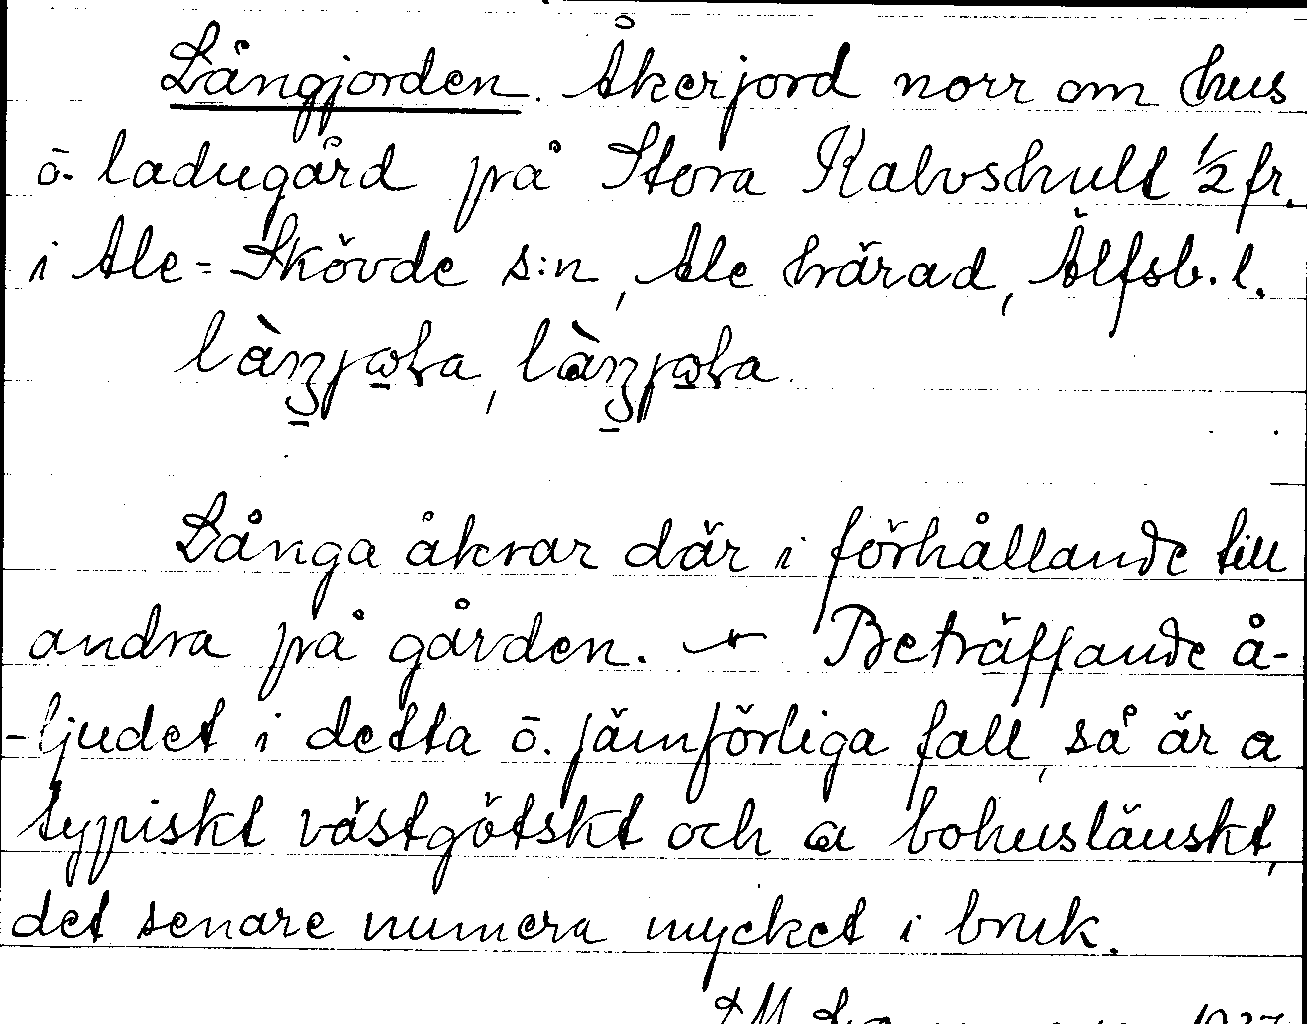 Långjorden. Åkerjord norr om hus
o. ladugård på Stora Kalvshult ½ fr.
i Ale-Skövde s:n, Ale härad, Älfsb. l.
Långa åkrar där i förhållande till
andra på gården. — Beträffande å-
-ljudet i detta o. jämförliga fall, så är a
typiskt västgötskt och ɑ bohuslänskt,
det senare numera mycket i bruk.